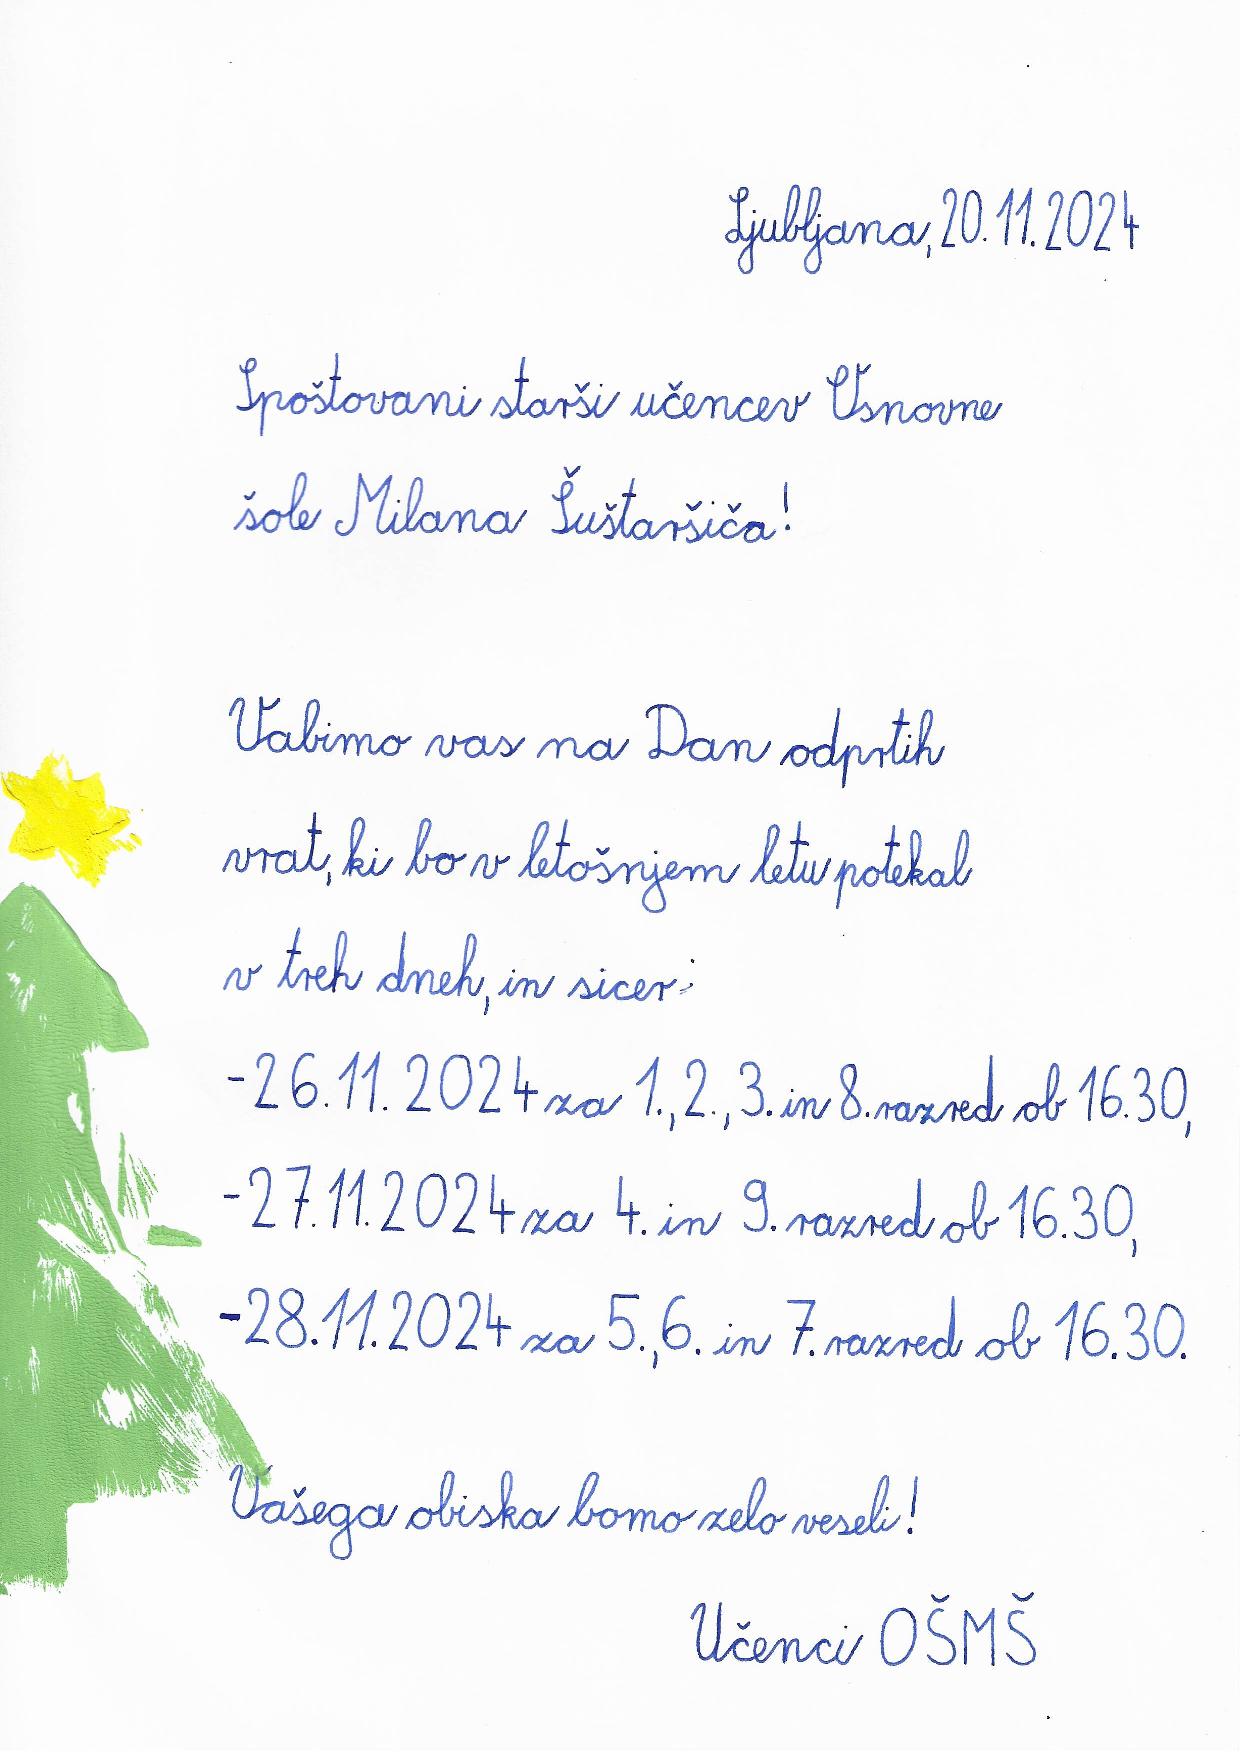 Ljubljana, 20.11.2024
Spoštovani starši učencev Osnovne
šole Milana Šuštaršiča!
Vabimo vas na Dan odprtih
vrat, ki bo v letošnjem letu potekal
v treh dneh, in sicer:
-26.11.2024 za 1., 2., 3. in 8. razred ob 16.30,
-27.11.2024 za 4. in 9. razred ob 16.30,
-28.11.2024 za 5., 6. in 7. razred ob 16.30.
Vašega obiska bomo zelo veseli!
Učenci OŠMŠ